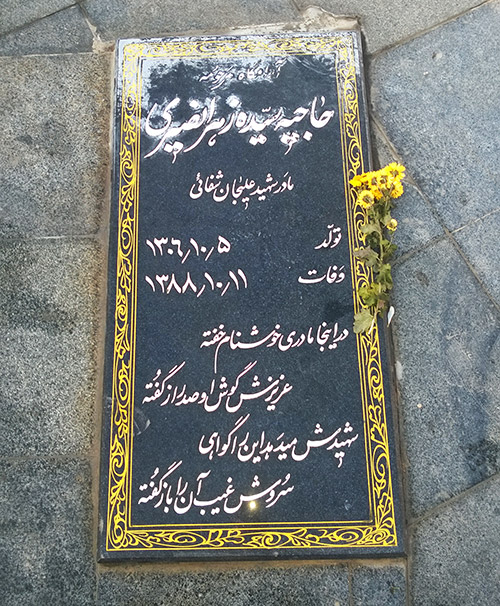 آرامگاه مرحومه
حاجیه سیده زهرا نصیری
مادر شهید علیجان شفائی
تولد ۱۳۰۶٫۱۰٫۵
وفات ۱۳۸۸٫۱۰٫۱۱
در اینجا مادری خوشنام خفته
عزیزش گوش او صد راز گفته
شهیدش میدهد این را گواهی
سروش غیب آن را باز گفته